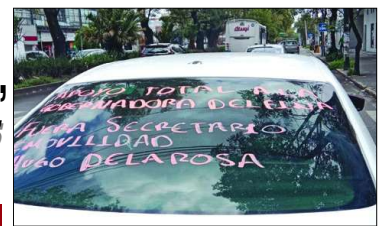 APOYO TOTAL A LA
GOBERNADORA DELFINA
FUERA SECRETARIO
MOVILIDAD
HUGO DE LA ROSA